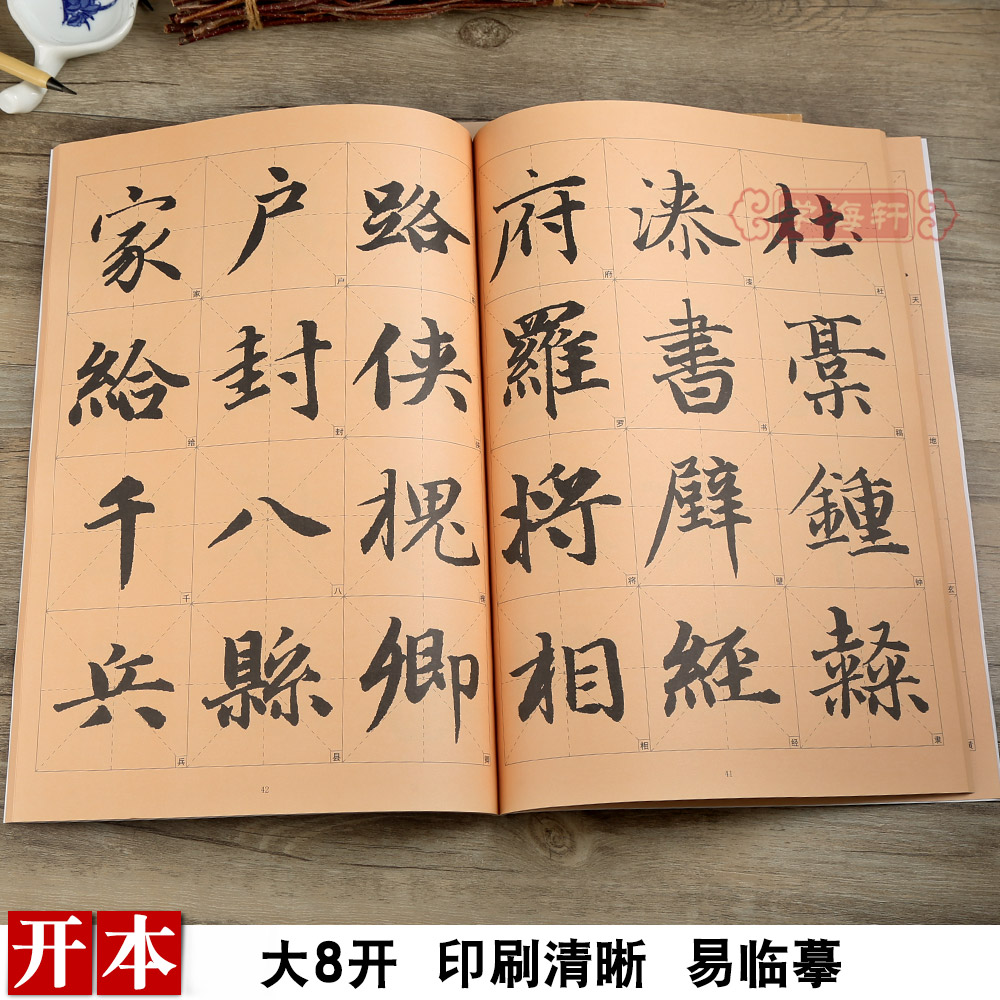 杜稾鍾隸
漆書壁經
府羅將相
路俠槐卿
户封八縣
家給千兵
杜稿钟隶
漆书壁经
府罗将相
户封八县
家给千兵
天地玄
41
42
学海轩
开本
大8开 印刷清晰 易临摹